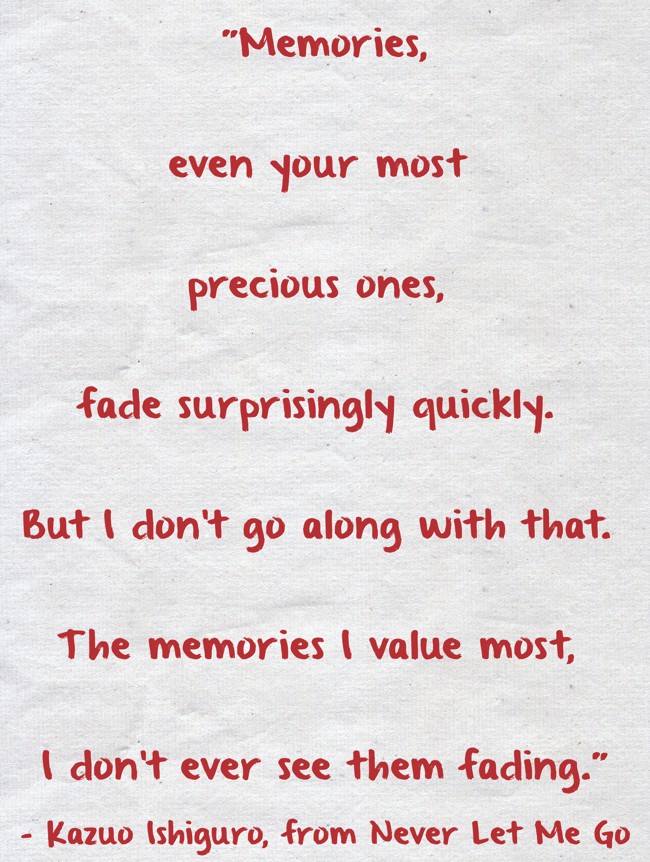 "Memories,
even your most
precious ones,
fade surprisingly quickly.
But I don't go along with that.
The memories I value most,
I don't ever see them fading."
- Kazuo Ishiguro, from Never Let Me Go